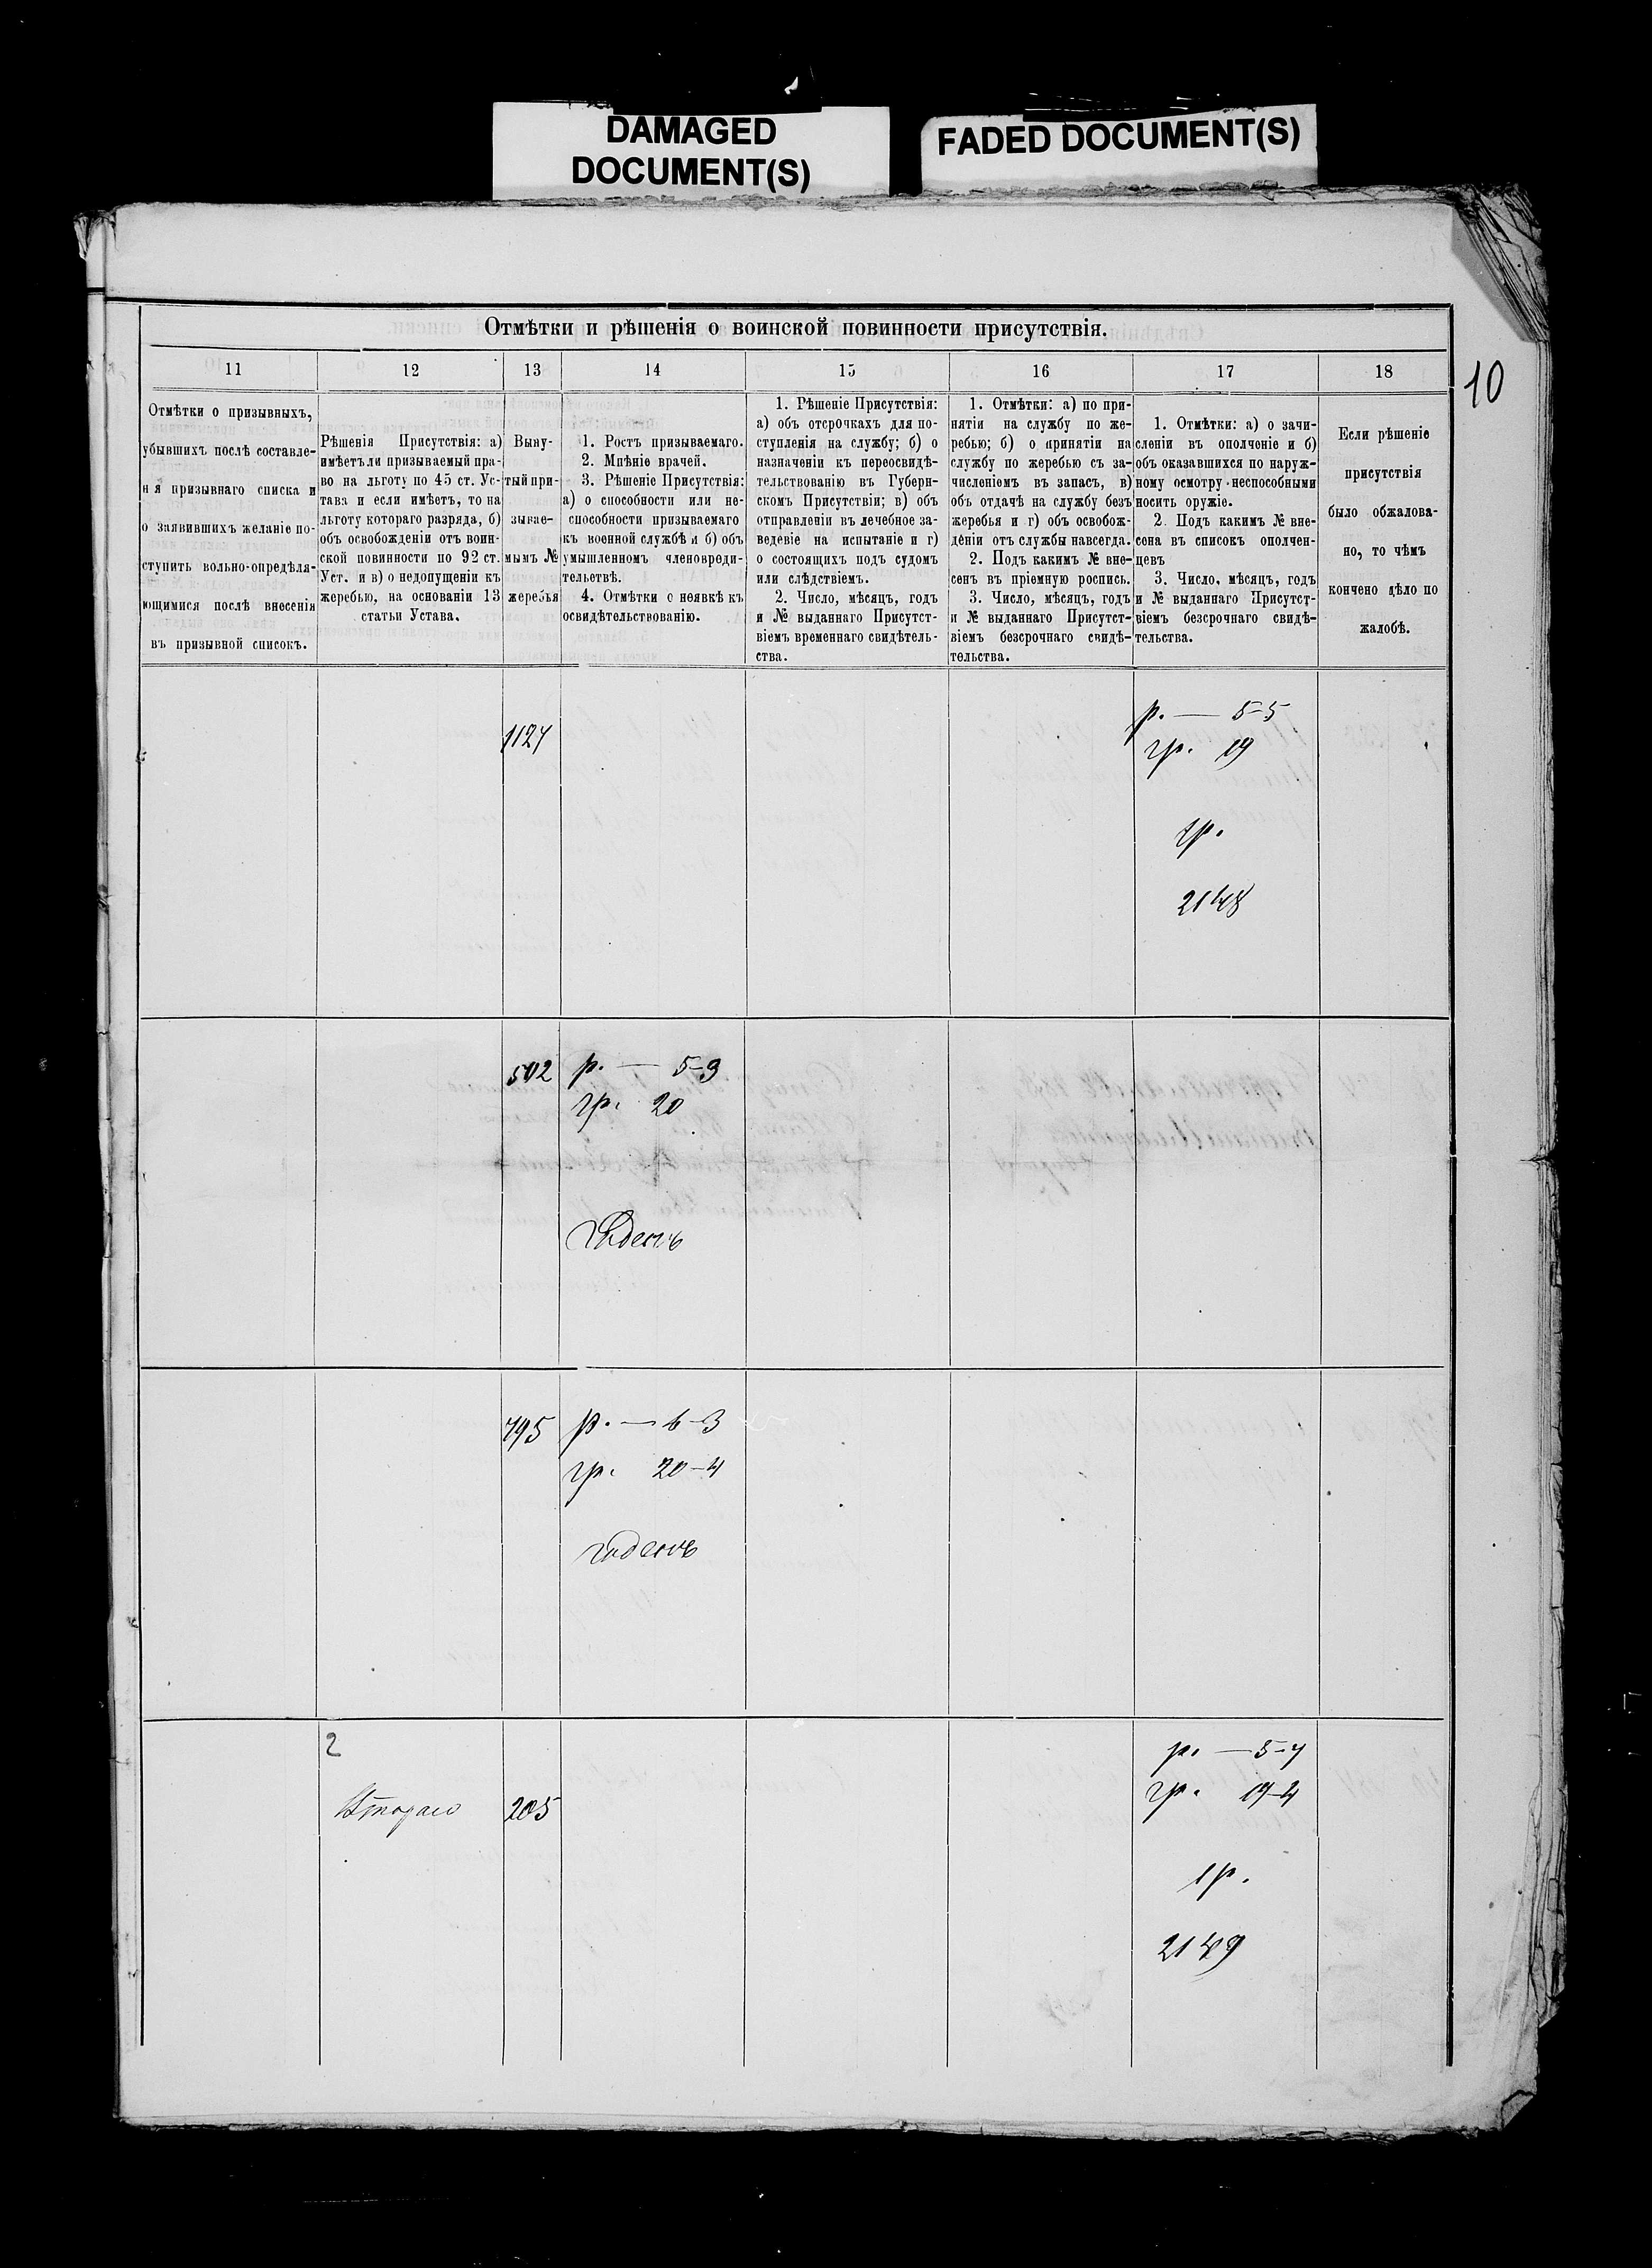 DAMAGED
DOCUMENT(S)
FADED DOCUMENT(S)
Отмѣтки и рѣшенія о воинской повинности присутствія.
10
11
12
13
14
15
16
17
18
Отмѣтки о призывныхъ,
убывшихъ послѣ составле-
нія призывнаго списка и
о заявившихъ желаніе по-
ступить вольно-опредѣля-
ющимися послѣ внесенія
въ призывной списокъ.
Рѣшенія Присутствія: а)
имѣетъ ли призываемый пра-
во на льготу по 45 ст. Ус-
тава и если имѣетъ, то на
льготу котораго разряда, б)
объ освобожденіи отъ воин-
ской повинности по 92 ст.
Уст. и в) о недопущеніи къ
жеребью, на основаніи 13
статьи Устава.
Выну-
тый при-
зывае-
мымъ №
жеребья
1. Ростъ призываемаго.
2. Мнѣніе врачей.
3. Рѣшеніе Присутствія:
а) о способности или не-
способности призываемаго
къ военной службѣ и б) объ
умышленномъ членовреди-
тельствѣ.
4. Отмѣтки о неявкѣ къ
освидѣтельствованію.
1. Рѣшеніе Присутствія:
а) объ отсрочкахъ для по-
ступленія на службу; б) о
назначеніи къ переосвидѣ-
тельствованію въ Губерн-
скомъ Присутствіи; в) объ
отправленіи въ лечебное за-
веденіе на испытаніе и г)
о состоящихъ подъ судомъ
или слѣдствіемъ.
2. Число, мѣсяцъ, годъ
и № выданнаго Присутст-
віемъ временнаго свидѣтель-
ства.
1. Отмѣтки: а) по при-
нятіи на службу по же-
ребью; б) о принятіи на
службу по жеребью съ за-
численіемъ въ запасъ, в)
объ отдачѣ на службу безъ
жеребья и г) объ освобож-
деніи отъ службы навсегда.
2. Подъ какимъ № вне-
сенъ въ пріемную роспись.
3. Число, мѣсяцъ, годъ
и № выданнаго Присутст-
віемъ безсрочнаго свидѣ-
тельства.
1. Отмѣтки: а) о зачи-
сленіи въ ополченіе и б)
объ оказавшихся по наруж-
ному осмотру неспособными
носить оружіе.
2. Подъ какимъ № вне-
сена въ списокъ ополчен-
цевъ
3. Число, мѣсяцъ, годъ
и № выданнаго Присутст-
віемъ безсрочнаго свидѣ-
тельства.
Если рѣшеніе
присутствія
было обжалова-
но, то чѣмъ
кончено дѣло по
жалобѣ.
1124
р. — 5-5
гр. 19
1р.
2148
502
р. — 5-3
гр. 20
Годенъ
795
р. — 6-3
гр. 20-4
годенъ
2
Втораго
205
р. — 5-4
гр. 19-4
1р.
2149